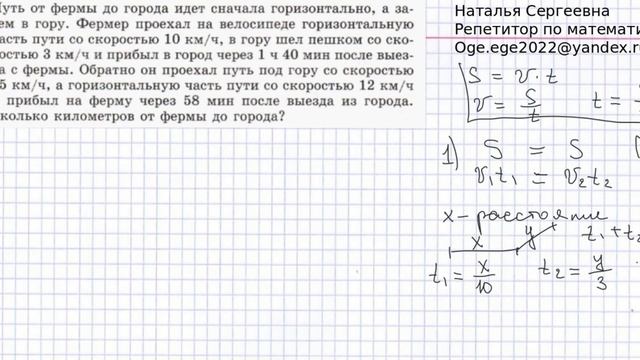 уть от фермы до города идет сначала горизонтально, а за-
ем в гору. Фермер проехал на велосипеде горизонтальную
асть пути со скоростью 10 км/ч, в гору шел пешком со ско-
остью 3 км/ч и прибыл в город через 1 ч 40 мин после выез-
а с фермы. Обратно он проехал путь под гору со скоростью
5 км/ч, а горизонтальную часть пути со скоростью 12 км/ч
прибыл на ферму через 58 мин после выезда из города.
колько километров от фермы до города?
Наталья Сергеевна
Репетитор по математи
Oge.ege2022@yandex.ru
S = v·t
v = S/t t =
1) S = S
v₁t₁ = v₂t₂
x – расстояние
x y t₁ + t₂
t₁ = x/10 t₂ = y/3